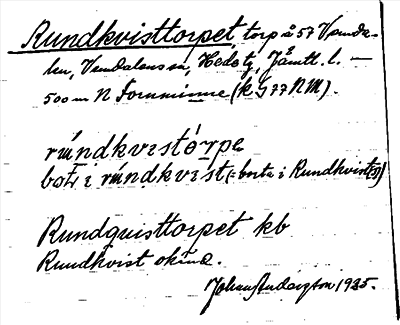 Rundkvisttorpet, torp å 57 Venda-
len, Vemdalens sn, Hede tg, Jämtl. l. —
500 m N Fornminne (k G 77 NM).
rúndkvistórpe
bor i rúndkvist (= borta i Rundkvist(s))
Rundquisttorpet kb
Rundkvist okänd.
Johan Andersson 1935.